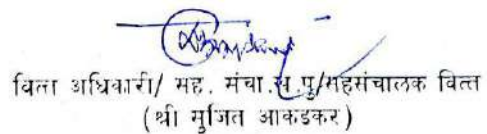 वित्त अधिकारी/ सह. संचा.सं.पु/सहसंचालक वित्त
(श्री सुजित आकडकर)